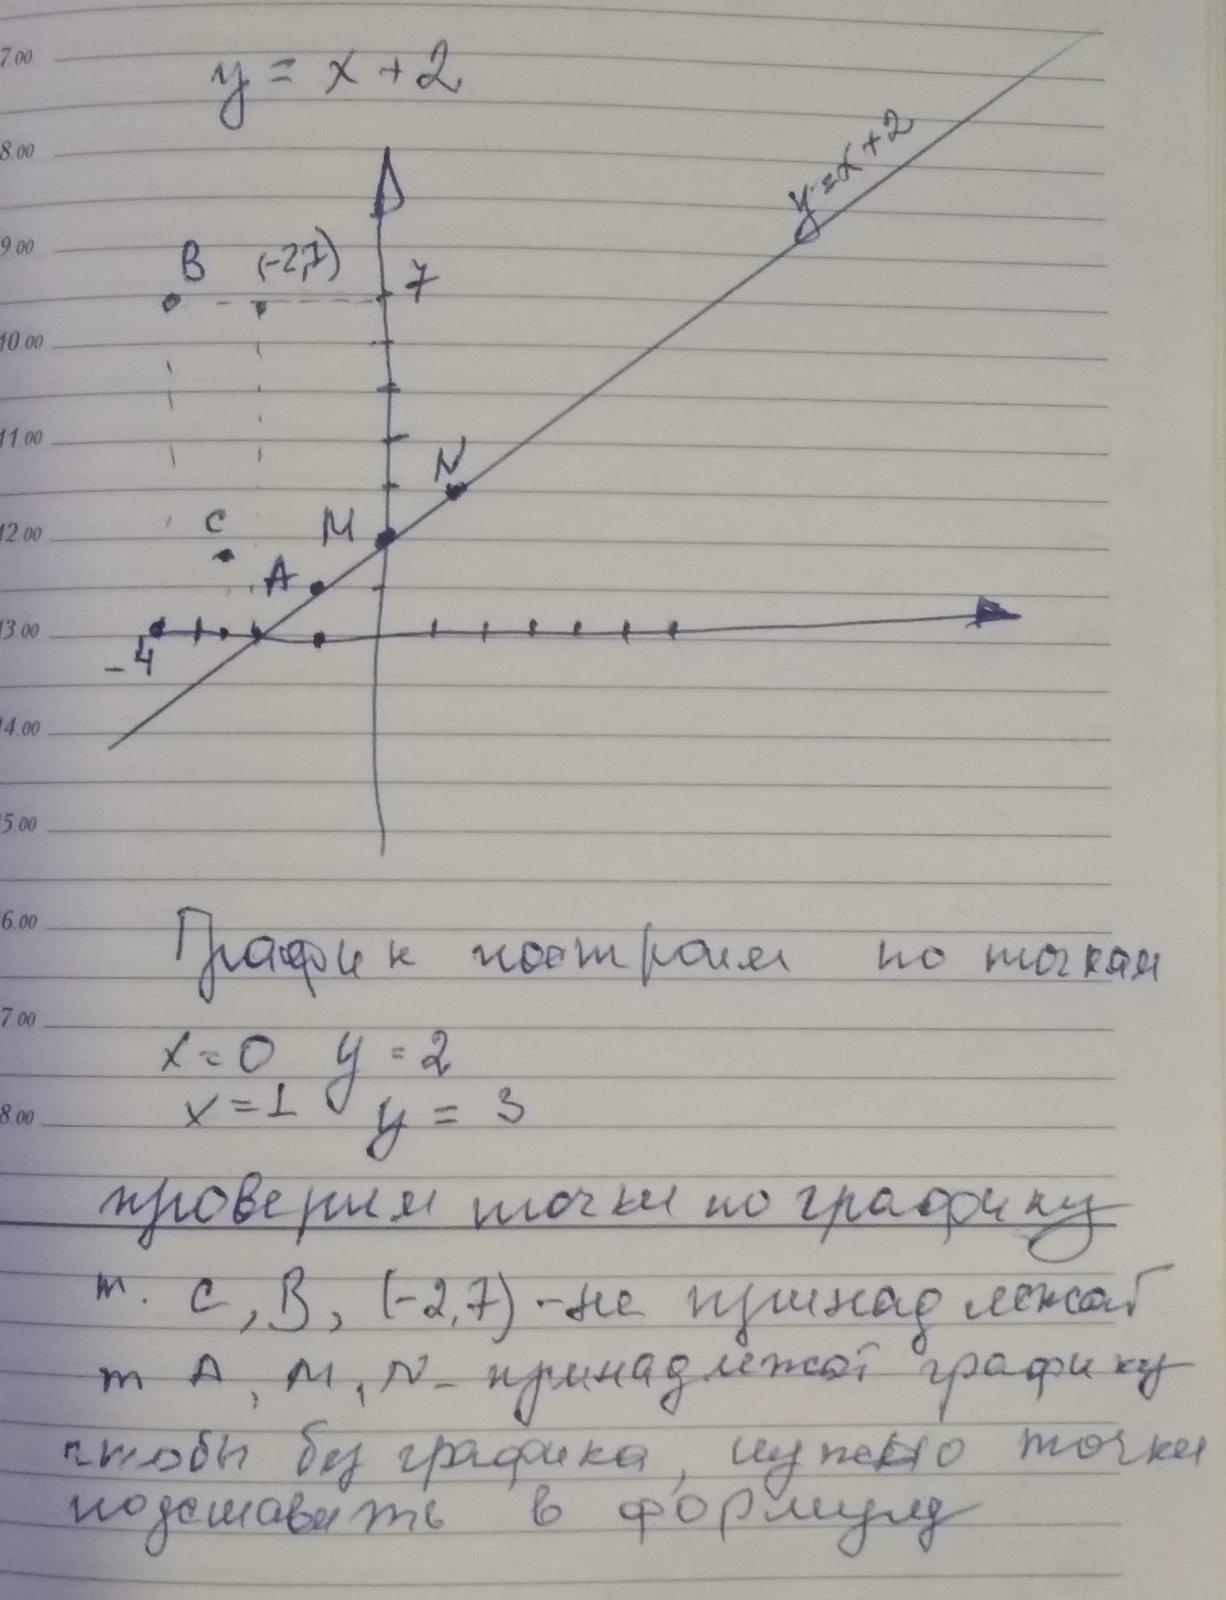 7.00
y = x + 2
8.00
y = x + 2
9.00
B (-2,7)
7
10.00
11.00
N
12.00
C
M
A
13.00
-4
14.00
15.00
16.00
График построим по точкам
17.00
x = 0 y = 2
x = 1 y = 3
18.00
проверим точки по графику
т. C, B, (-2,7) - не принадлежат
т A, M, N - принадлежат графику
чтобы без графика, нужно точки
подставить в формулу